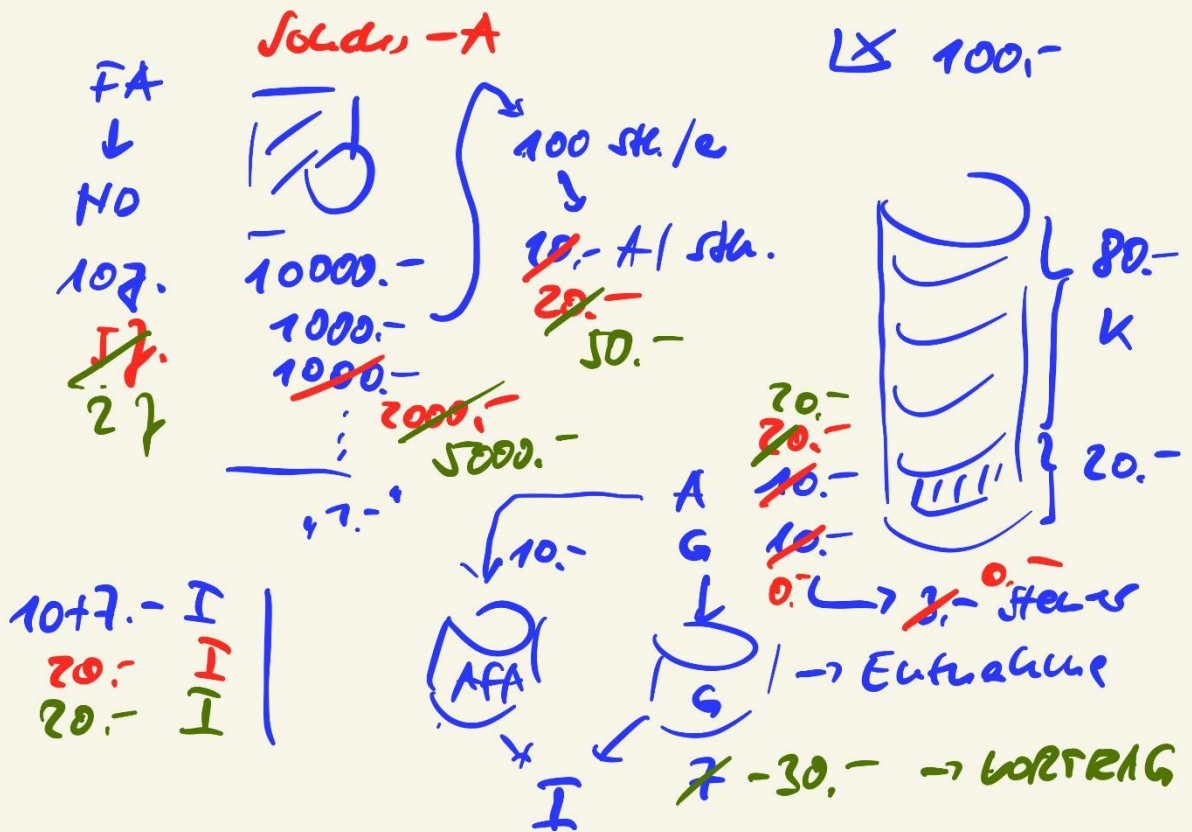 Sonder-A
FA
ND
10 J.
5 J.
2 J
10000.-
1000.-
1000.-
2000.-
5000.-
"1.-"
100 Stk./a
10.- A/Stk.
20.-
50.-
100.-
80.-
K
20.-
20.-
20.-
A 10.-
G 10.-
0.- → 3.- 0.- Steuer
10.-
AfA
G → Entnahme
I
7 -30.- → VORTRAG
10+7.- I
20.- I
20.- I